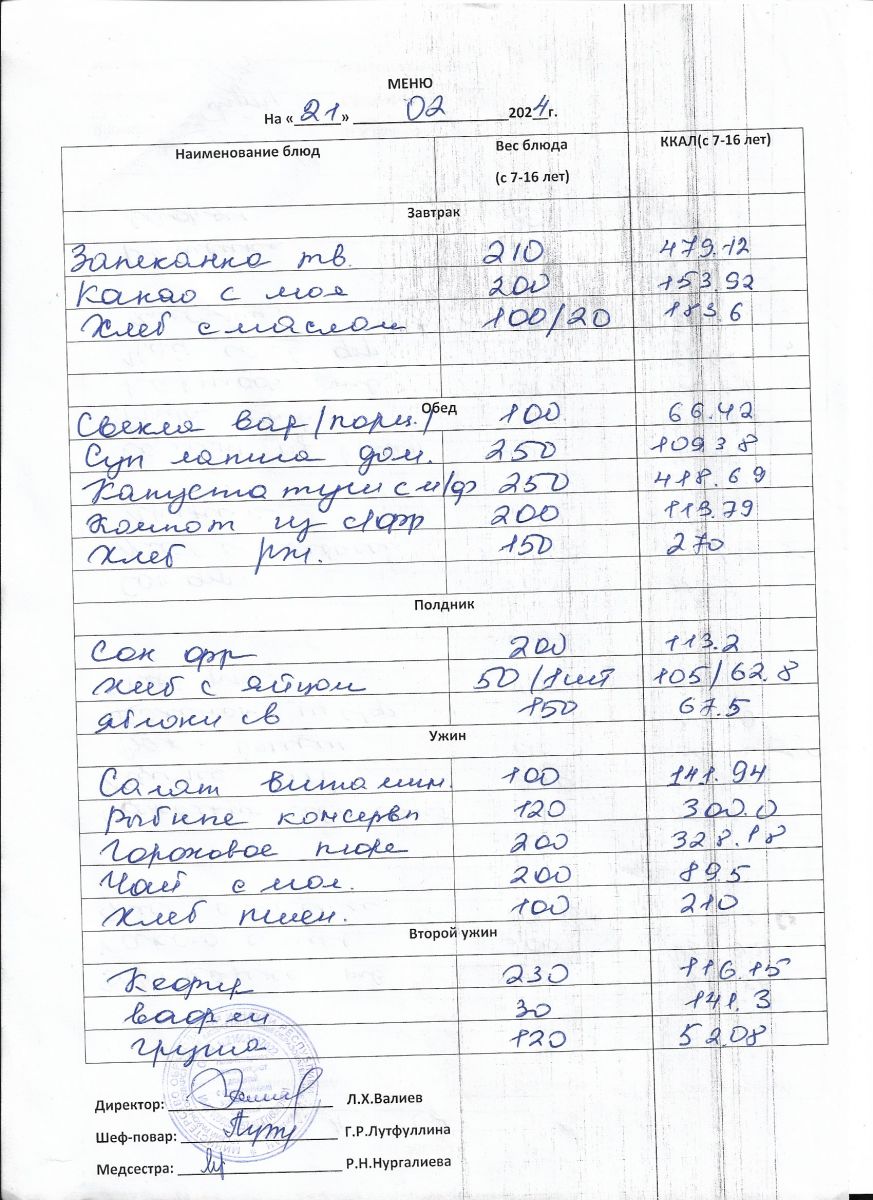 МЕНЮ
На «21» 02 2024г.
Наименование блюд Вес блюда (с 7-16 лет) ККАЛ(с 7-16 лет)
Завтрак
Запеканка тв. 210 479.12
Какао с мол 200 153.92
Хлеб с маслом 100/20 183.6
Обед
Свекла вар/порц./ 100 66.42
Суп лапша дом. 250 109 38
Капуста туш с м/ф 250 418.69
Компот из с/фр 200 113.79
Хлеб рж. 150 270
Полдник
Сок фр 200 113.2
Хлеб с яйцом 50/1шт 105/62.8
яблоки св 150 67.5
Ужин
Салат витамин. 100 141.94
Рыбные консервы 120 300.0
Гороховое пюре 200 328.18
Чай с мол. 200 89.5
Хлеб пшен. 100 210
Второй ужин
Кефир 230 116.15
вафли 30 141.3
груша 120 52.08
Директор: Л.Х.Валиев
Шеф-повар: Г.Р.Лутфуллина
Медсестра: Р.Н.Нургалиева